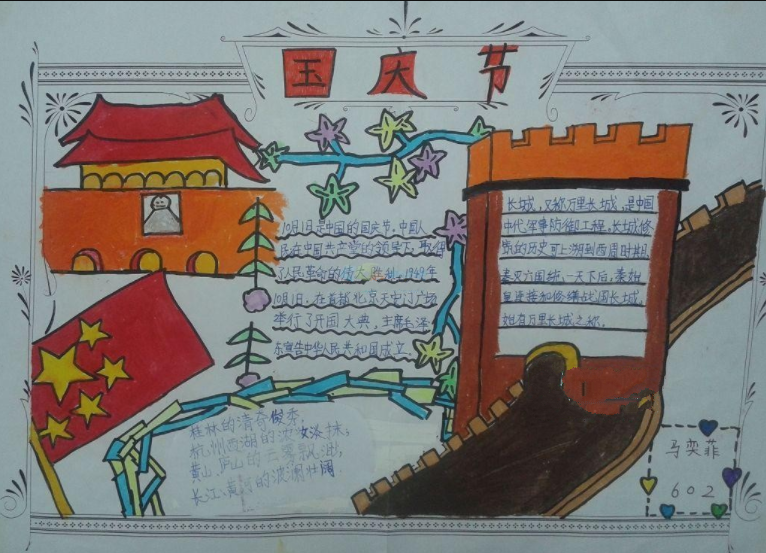 国庆节
10月1日是中国的国庆节。中国人
民在中国共产党的领导下，取得
了人民革命的伟大胜利。1949年
10月1日，在首都北京天安门广场
举行了开国大典，主席毛泽
东宣告中华人民共和国成立。
长城，又称万里长城，是中国
古代军事防御工程，长城修
筑的历史可上溯到西周时期，
秦灭六国统一天下后，秦始
皇连接和修缮战国长城，
始有万里长城之称。
桂林的清奇俊秀，
杭州西湖的浓妆淡抹，
黄山、庐山的云雾飘渺，
长江、黄河的波澜壮阔
马奕菲
602